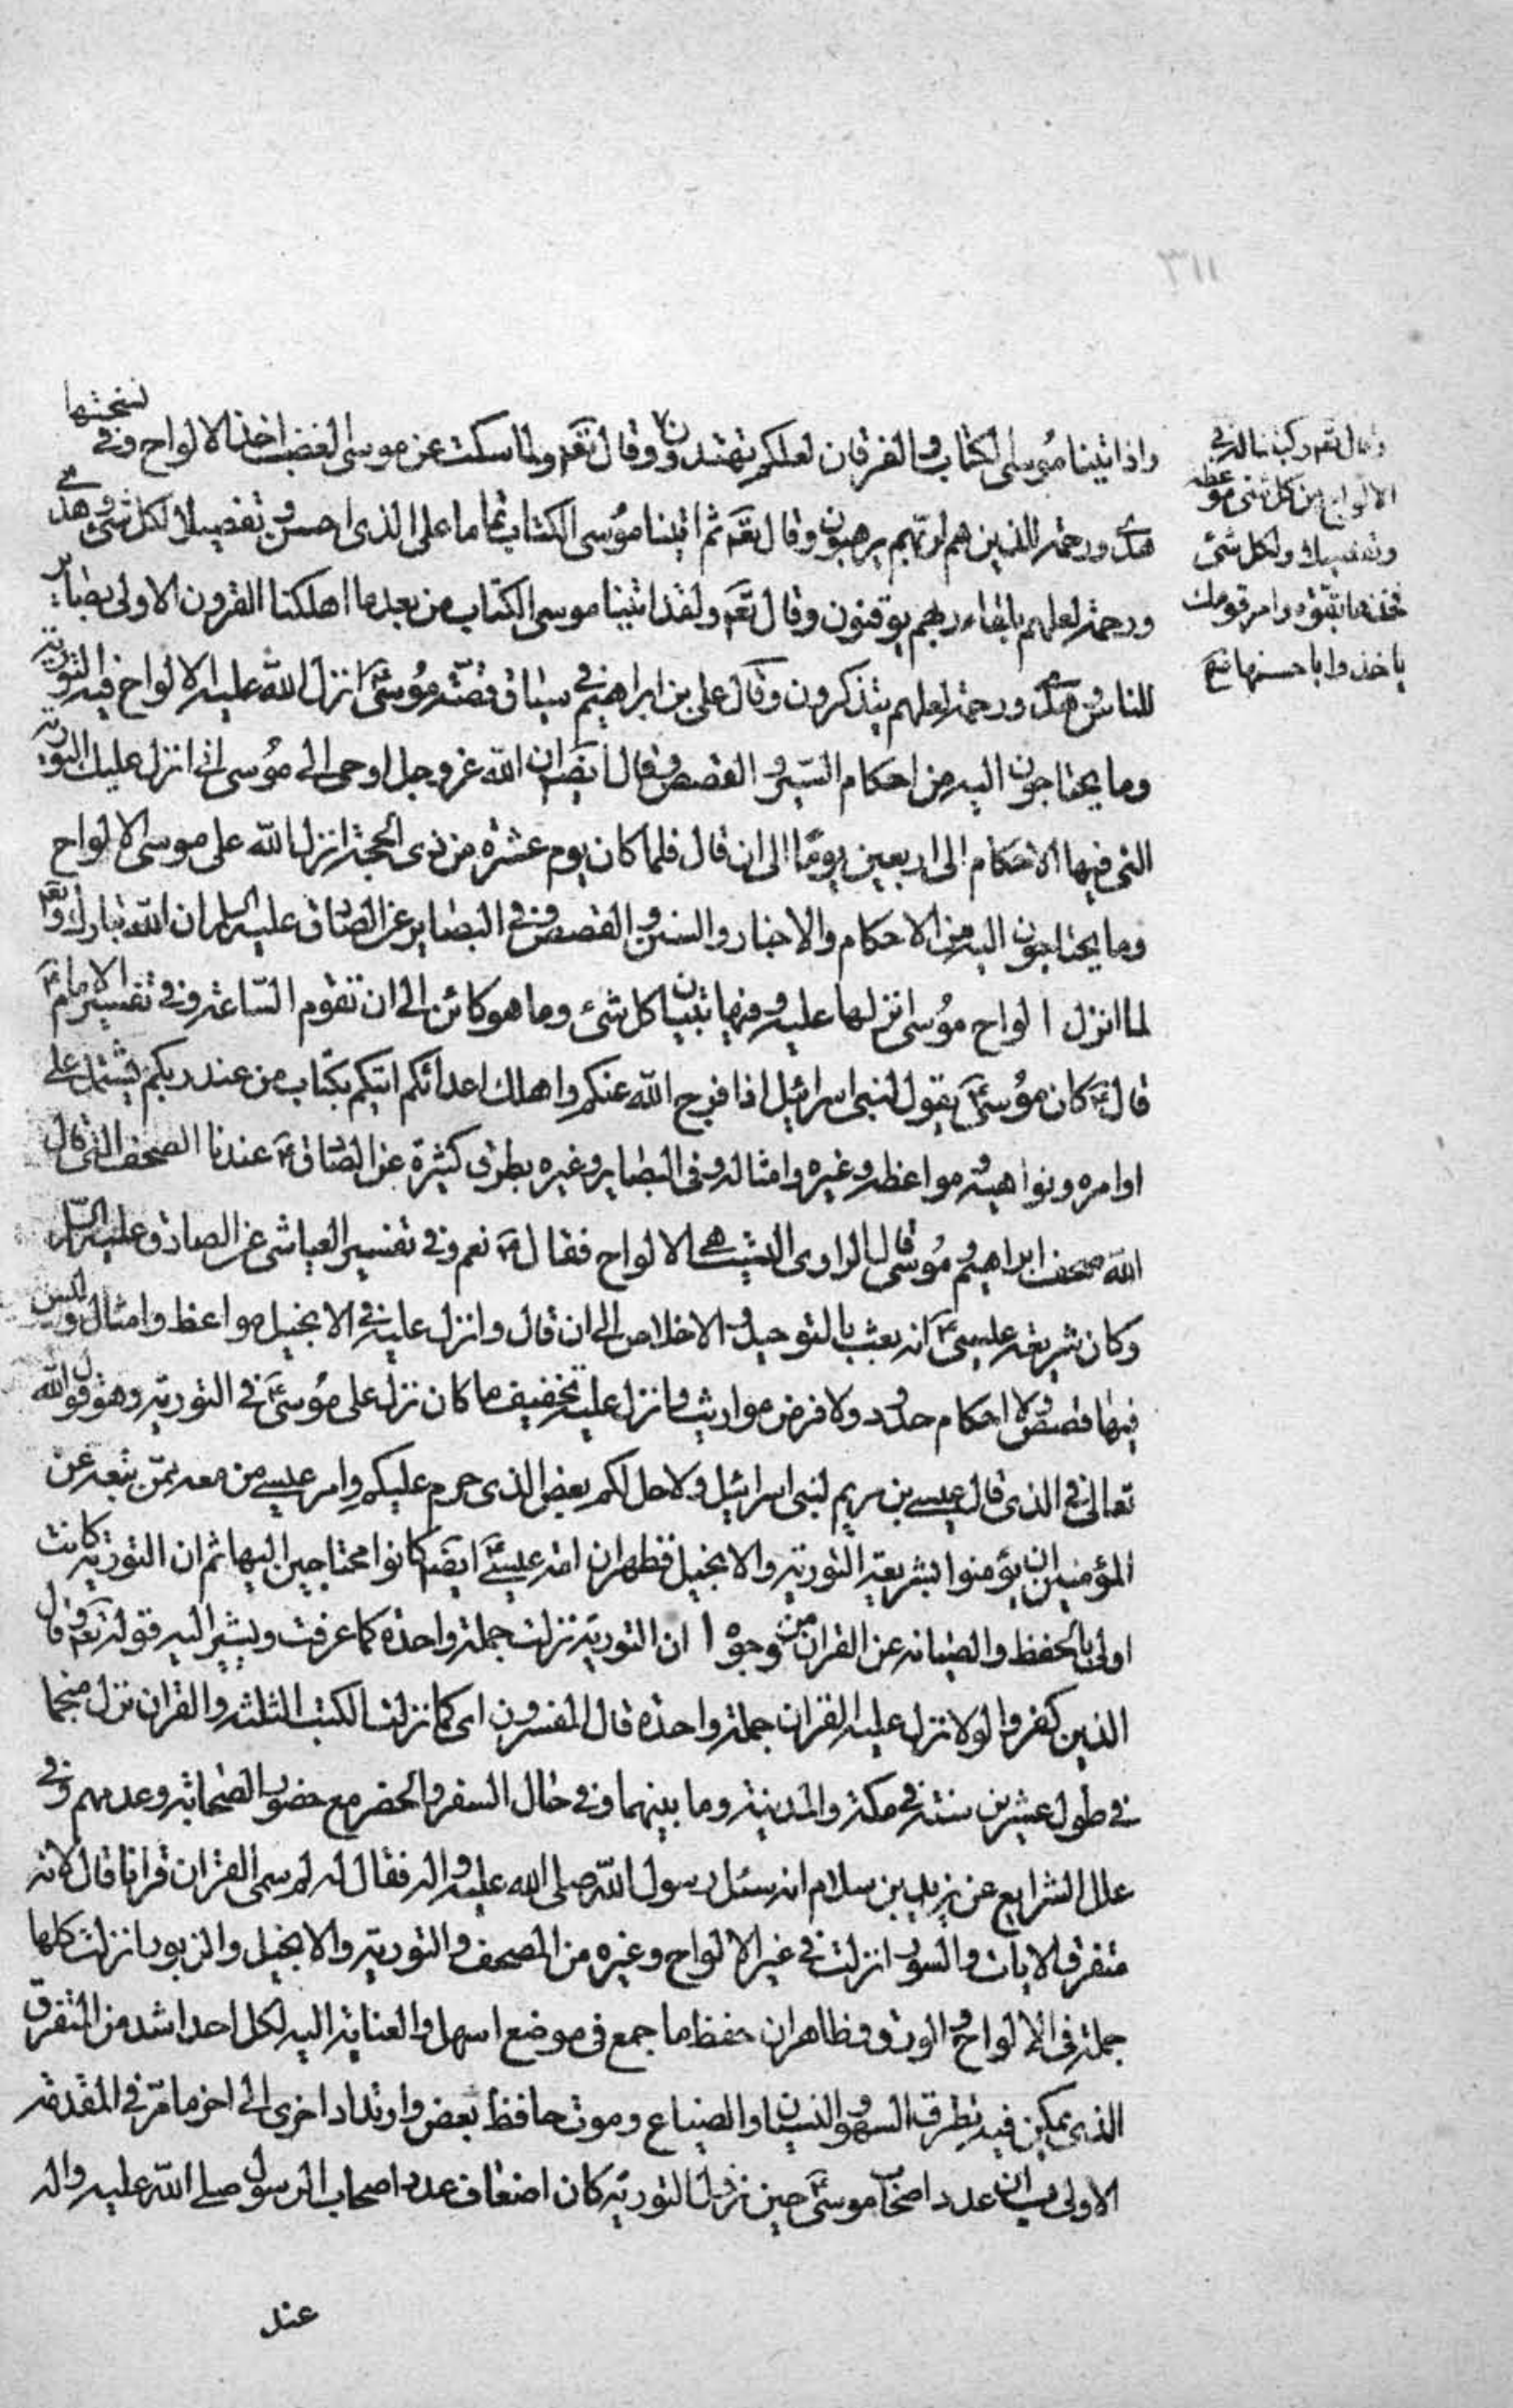 ٣١١
واذا تينا موسى الكتاب والفرقان لعلكم تهتدون وقال تعم ولما سكت عن موسى الغضب اخذ الالواح وفي نسختها
هدى ورحمة للذين هم لربهم يرهبون وقال تعم ثم اتينا موسى الكتاب تماما على الذى احسن وتفصيلا لكل شئ وهدى
ورحمة لعلهم بلقاء ربهم يوقنون وقال تعم ولقد اتينا موسى الكتاب من بعد ما اهلكنا القرون الاولى بصاير
للناس وهدى ورحمة لعلهم يتذكرون وقال على بن ابراهيم في سياق قصة موسى ع انزل الله عليه الالواح فيه التورية
وما يحتاجون اليه من احكام السير والقصص وقال ايضا ان الله عز وجل اوحى الى موسى انى انزل عليك التورية
التى فيها الاحكام الى اربعين يوما الى ان قال فلما كان يوم عشرة من ذى الحجة انزل الله على موسى الالواح
وما يحتاجون اليه من الاحكام والاخبار والسنن والقصص وفي البصاير عن الصادق عليه السلام ان الله تبارك وتعم
لما انزل الواح موسى انزلها عليه وفيها تبيان كل شئ وما هو كائن الى ان تقوم الساعة وفي تفسير الامام ع
قال ع كان موسى ع يقول لبنى اسرائيل اذا فرج الله عنكم واهلك اعدائكم اتيكم بكتاب من عند ربكم يشتمل على
اوامره ونواهيه ومواعظه وغيره وامثاله وفي البصاير وغيره بطرق كثيرة عن الصادق ع عندنا الصحف التى قال
الله صحف ابراهيم وموسى قال الراوى اليست هى الالواح فقال ع نعم وفي تفسير العياشى عن الصادق عليه السلام
وكان شريعة عيسى ع انه بعث بالتوحيد والاخلاص الى ان قال وانزل عليه في الانجيل مواعظ وامثال وليس
فيها قصص ولا احكام حدود ولا فرض مواريث وانزل عليه تخفيف ما كان نزل على موسى ع في التورية وهو قول الله
تعالى في الذى قال عيسى بن مريم لبنى اسرائيل ولاحل لكم بعض الذى حرم عليكم وامر عيسى من معه ممن يتبعه عن
المؤمنين ان يؤمنوا بشريعة التورية والانجيل فظهر ان امة عيسى ع ايضا كانوا محتاجين اليها ثم ان التورية كانت
اولى بالحفظ والصيانه عن القران من وجوه ا ان التورية نزلت جملة واحدة كما عرفت ويشير اليه قوله تعم وقال
الذين كفروا لولا نزل عليه القران جملة واحدة قال المفسرون اى كما نزلت الكتب الثلثه والقران نزل منجما
في طول عشرين سنة في مكة والمدينة وما بينهما وفي حال السفر والحضر مع حضور الصحابة وعدمهم وفي
علل الشرايع عن يزيد بن سلام انه سئل رسول الله صلى الله عليه واله فقال له لم سمى القران قرانا قال لانه
متفرق الايات والسور انزلت في غير الالواح وغيره من المصحف والتورية والانجيل والزبور انزلت كلها
جملة في الالواح والورق وظاهر ان حفظ ما جمع في موضع اسهل والعناية اليه لكل احد اشد من المتفرق
الذى يمكن فيه تطرق السهو والنسيان والضياع وموت حافظ بعض وارتداد اخرى الى اخر ما مر في المقدمة
الاولى ب ان عدد اصحاب موسى ع حين نزول التورية كان اضعاف عدد اصحاب الرسول صلى الله عليه واله
عند
وقال تعم وكتبنا له في
الالواح من كل شئ موعظة
وتفصيلا ولكل شئ
فخذها بقوة وامر قومك
ياخذوا باحسنها صح